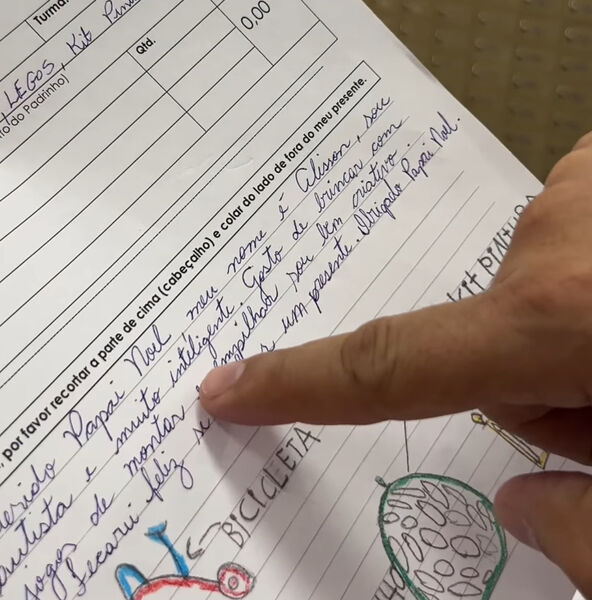 Turma:
LEGOS, Kit Pin
o do Padrinho)
Qtd.
0,00
, por favor recortar a parte de cima (cabeçalho) e colar do lado de fora do meu presente.
uerido Papai Noel, meu nome é Alisson, sou
autista e muito inteligente. Gosto de brincar com
jogos de montar e empilhar sou bem criativo.
Ficarei feliz se um presente. Obrigado Papai Noel.
KIT PINTURA
BICICLETA